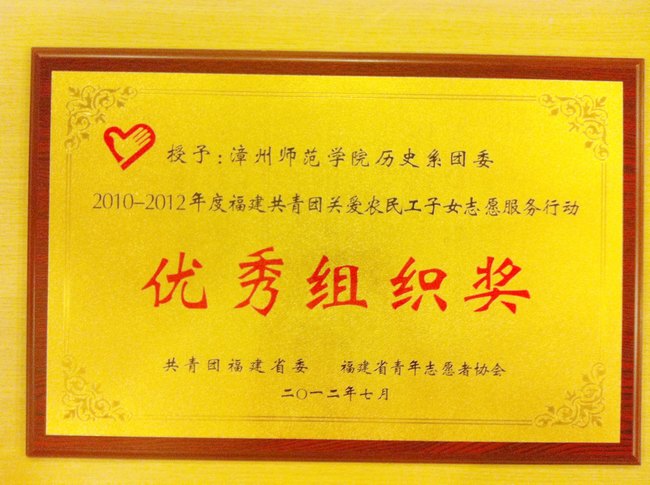 授予：漳州师范学院历史系团委
2010-2012年度福建共青团关爱农民工子女志愿服务行动
优秀组织奖
共青团福建省委 福建省青年志愿者协会
二〇一二年七月